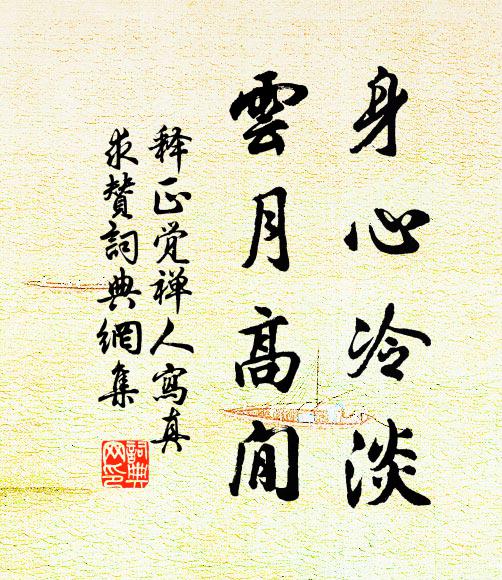 身心冷淡
雲月高閒
释正觉禅人寫真
求赞詞典網集
詞典网印